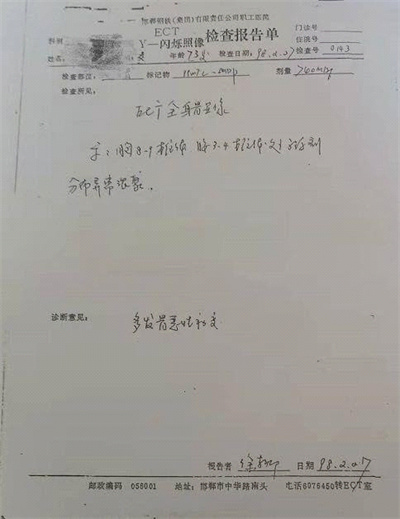 邯郸钢铁(集团)有限责任公司职工医院
ECT
γ—闪烁照像 检查报告单
门诊号
住院号
科别
姓名 年龄 73岁 检查日期 98.2.07 检查号 0143
检查部位: 标记物 99mTc-MDP 剂量 740MBq
检查所见:
ECT全身骨显像
示:胸8-9椎体 腰3-4椎体
分布异常浓聚.
诊断意见: 多发骨恶性病变
报告者 徐 日期 98.2.07
邮政编码 056001 地址:邯郸市中华路南头 电话6976450转ECT室